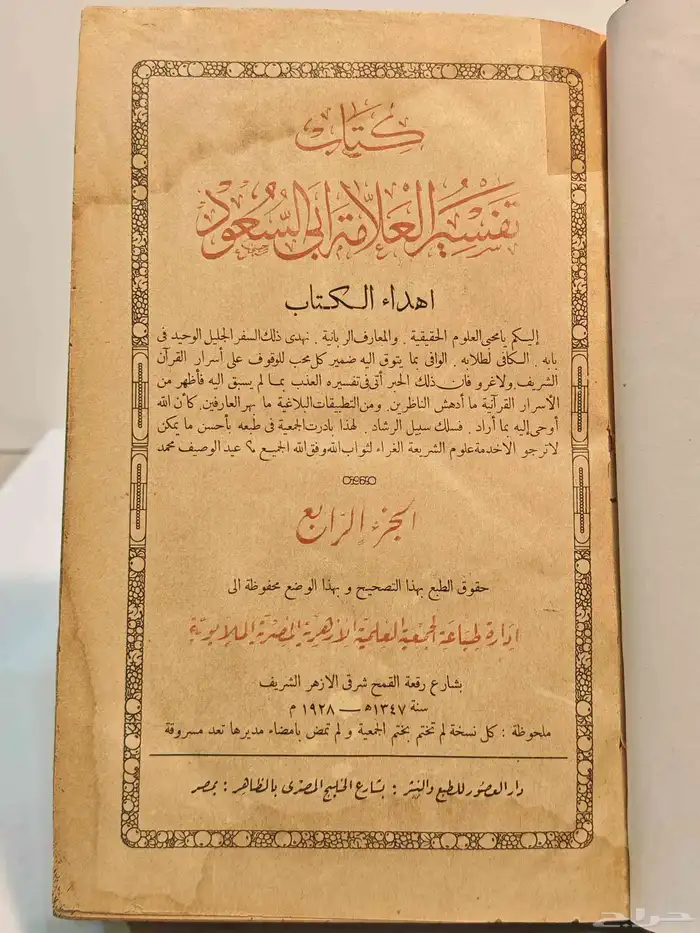 كتاب
تفسير العلامة ابى السعود
اهداء الكتاب
إليكم يامحبى العلوم الحقيقية . والمعارف الربانية . نهدى ذلك السفر الجليل الوحيد فى
بابه . الكافى لطلابه . الوافى بما يتوق اليه ضمير كل محب للوقوف على أسرار القرآن
الشريف. ولاغرو فان ذلك الحبر أتى فى تفسيره العذب بمـا لم يسبق اليه فأظهر من
الأسرار القرآنية ما أدهش الناظرين. ومن التطبيقات البلاغية ما بهر العارفين. كأن الله
أوحى إليه بما أراد . فسلك سبيل الرشاد . لهذا بادرت الجمعية فى طبعه بأحسن ما يمكن
لاترجو الاخدمة علوم الشريعة الغراء لثواب الله وفق الله الجميع ؟ عبد الوصيف محمد
الجزء الرابع
حقوق الطبع بهذا التصحيح و بهذا الوضع محفوظة الى
ادارة طباعة الجمعية العلمية الازهرية المصرية الملايوية
بشارع رقعة القمح شرقى الازهر الشريف
سنة ١٣٤٧ه — ١٩٢٨ م
ملحوظة : كل نسخة لم تختم بختم الجمعية و لم تمض بامضاء مديرها تعد مسروقة
دار العصور للطبع والنشر : بشارع الخليج المصرى بالظاهر : بمصر
حراج